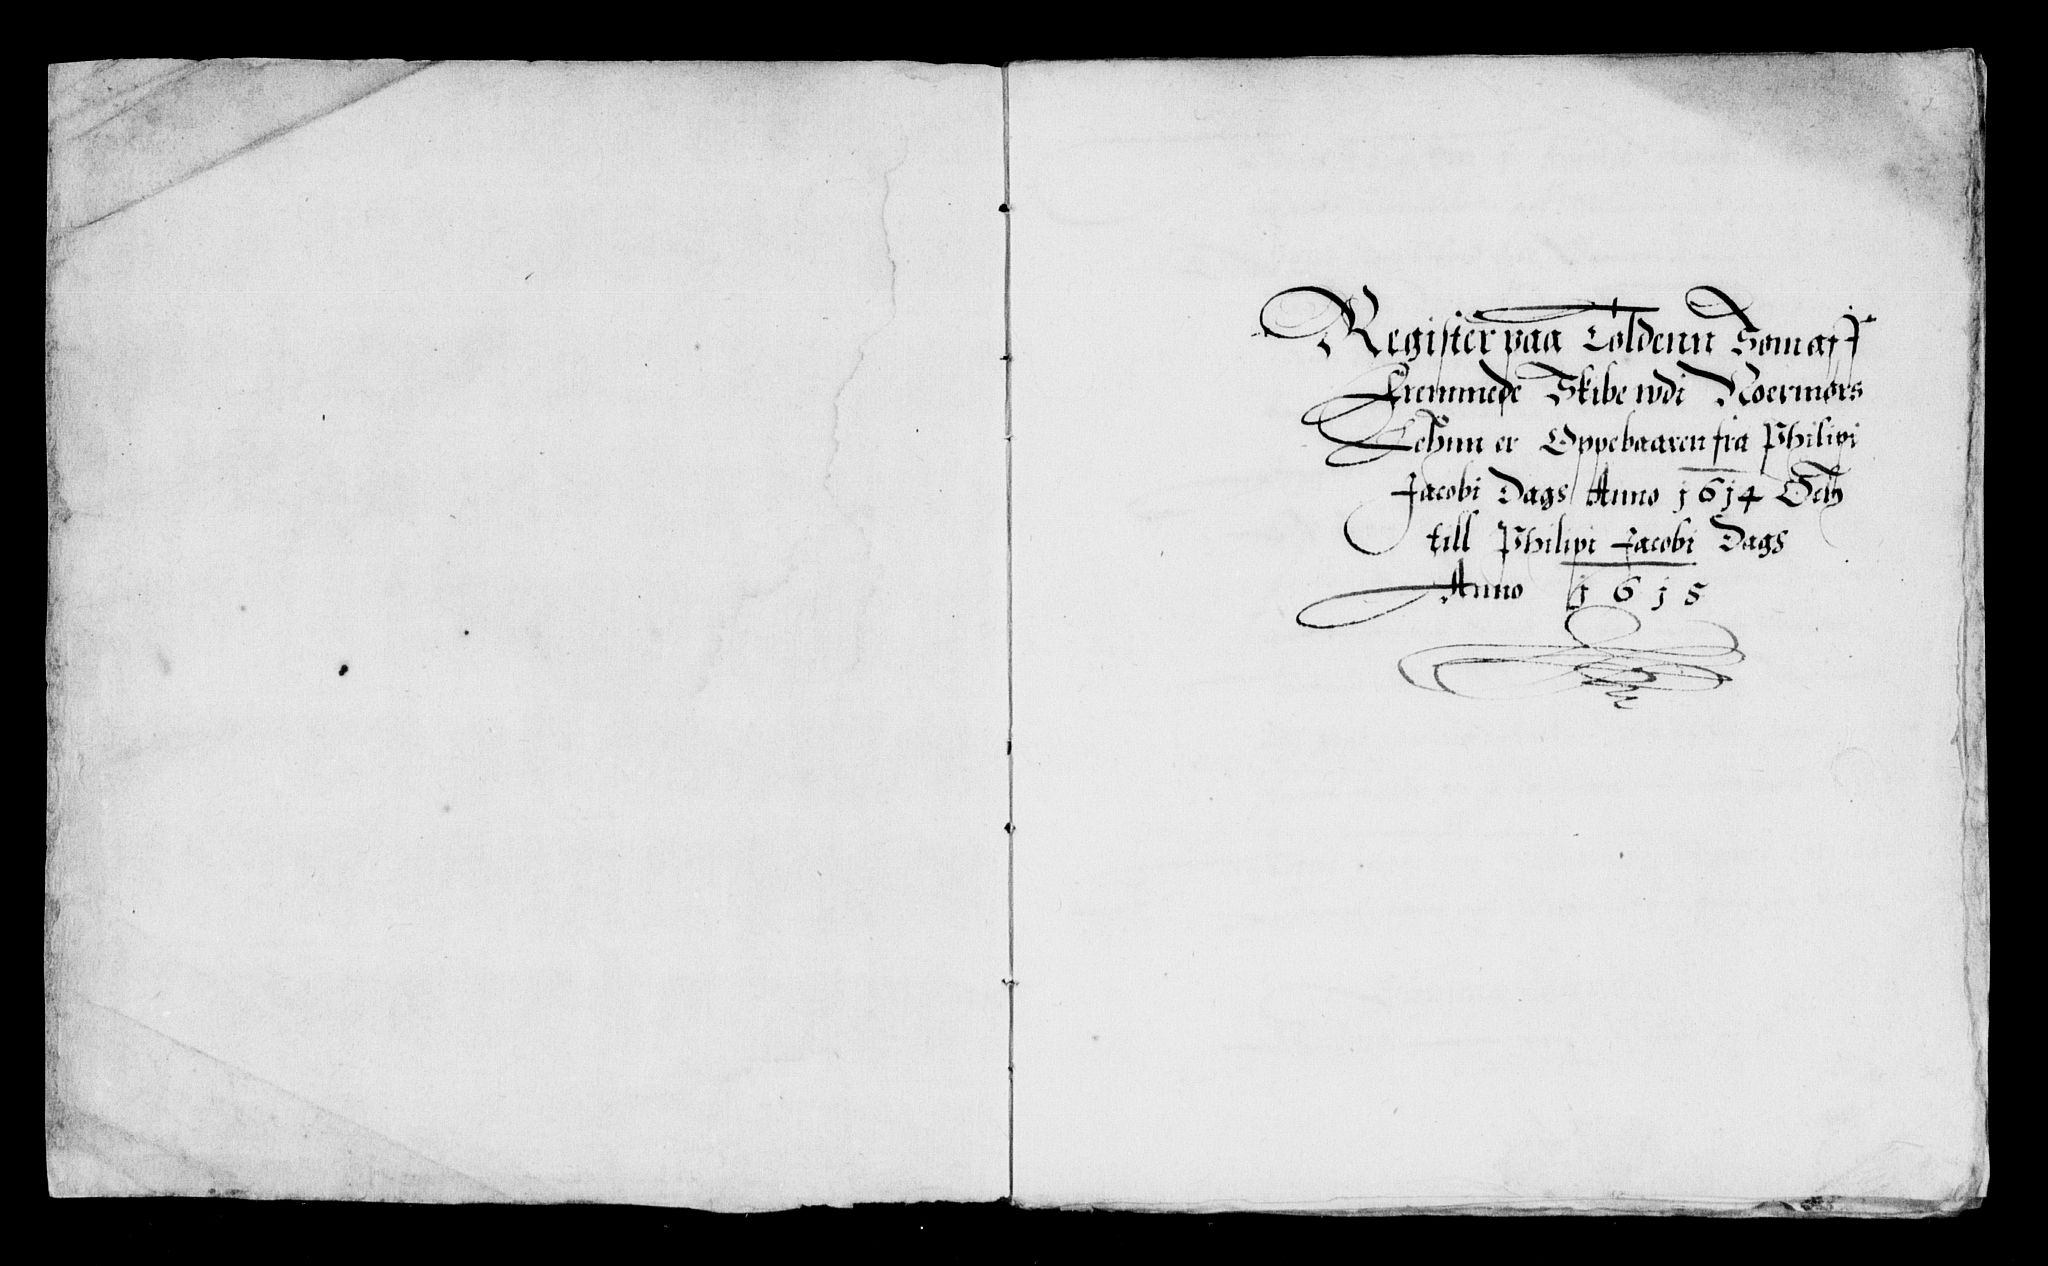 Register paa Toldenn Som aff
Fremmede Skibe udi Noermørs
Lehnn er Oppebaaren fra Philipi
Jacobi Dags Anno 1614 Och
till Philipi Jacobi Dags
Anno 1615